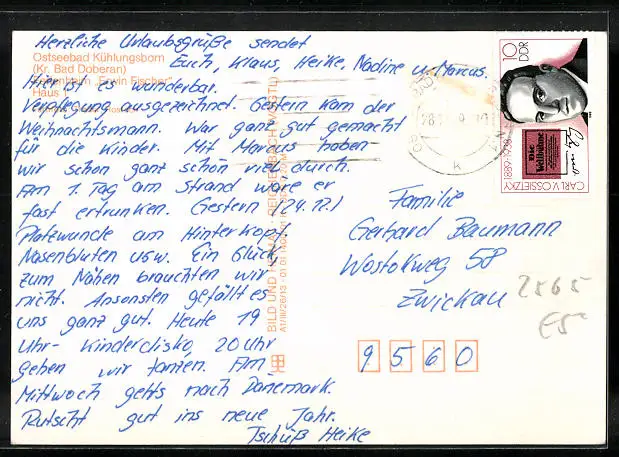 Herzliche Urlaubsgrüße sendet
Euch, Klaus, Heike, Nadine u. Marcus.
Ostseebad Kühlungsborn
(Kr. Bad Doberan)
"Erwin Fischer"
Haus 1
Hier ist es wunderbar.
Verpflegung ausgezeichnet. Gestern kam der
Weihnachtsmann. War ganz gut gemacht
für die Kinder. Mit Marcus haben
wir schon ganz schön viel durch.
Am 1. Tag am Strand wäre er
fast ertrunken. Gestern (24.12.)
Platzwunde am Hinterkopf.
Nasenbluten usw. Ein Glück,
zum Nähen brauchten wir
nicht. Ansonsten gefällt es
uns ganz gut. Heute 19
Uhr- Kinderdisko, 20 Uhr
gehen wir tanzen. Am
Mittwoch gehts nach Dänemark.
Rutscht gut ins neue Jahr.
Tschüß Heike
BILD UND HEIMAT REICHENBACH (VOGTL)
A1/III/26/13
Familie
Gerhard Baumann
Wostokweg 58
Zwickau
9560
10 DDR
Die Weltbühne
CARL V. OSSIETZKY 1889-1938
2865
E5